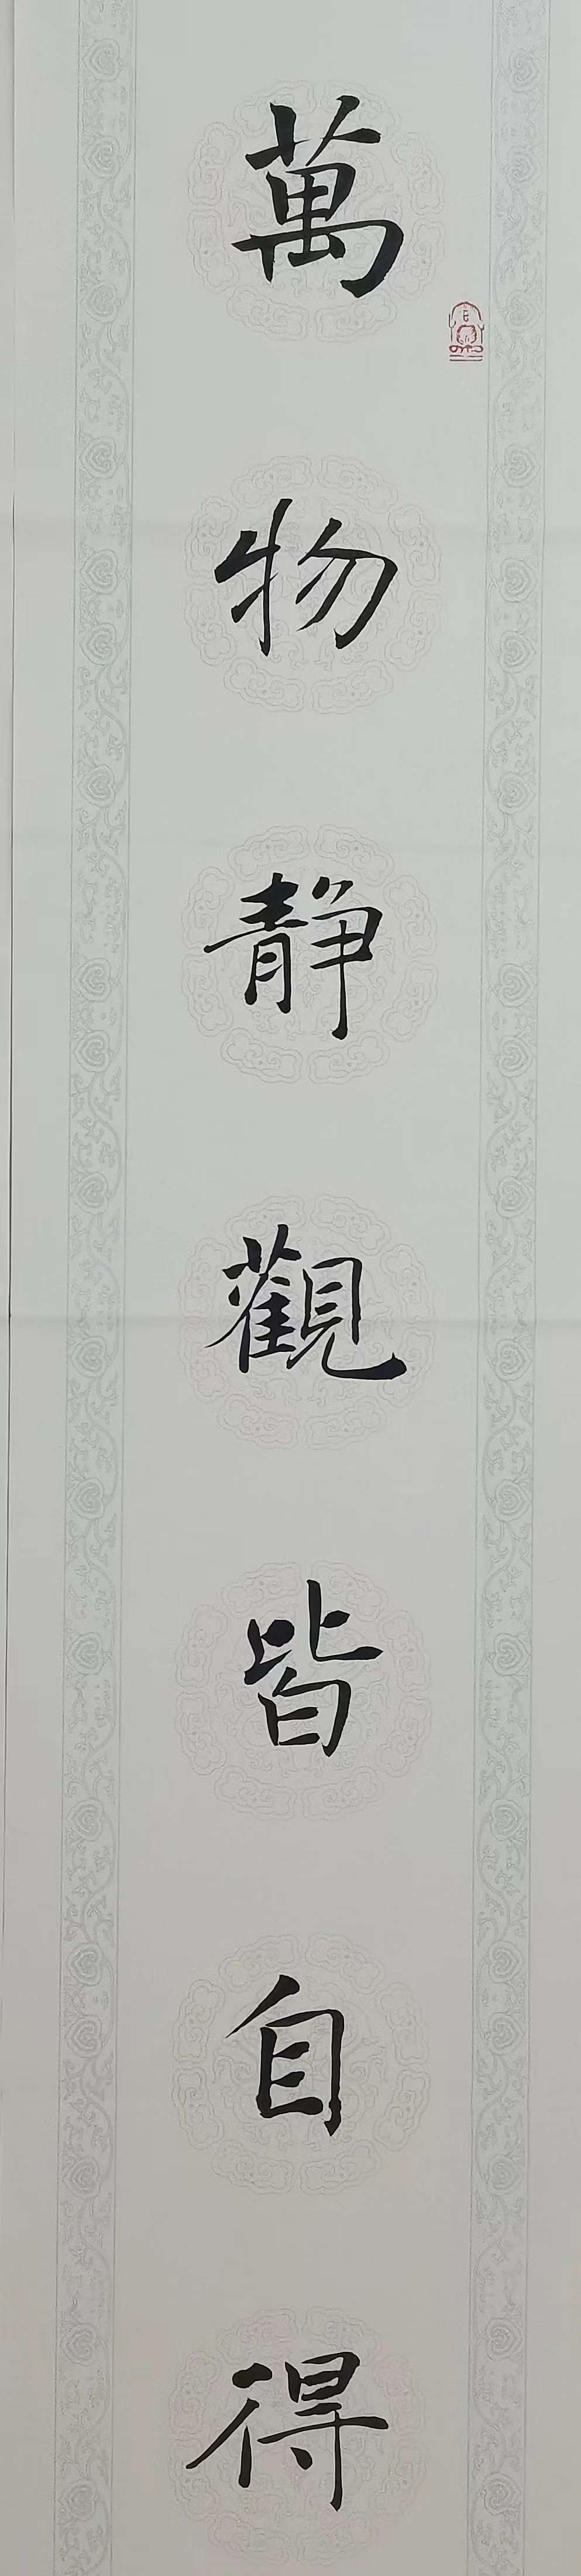 萬物静觀皆自得